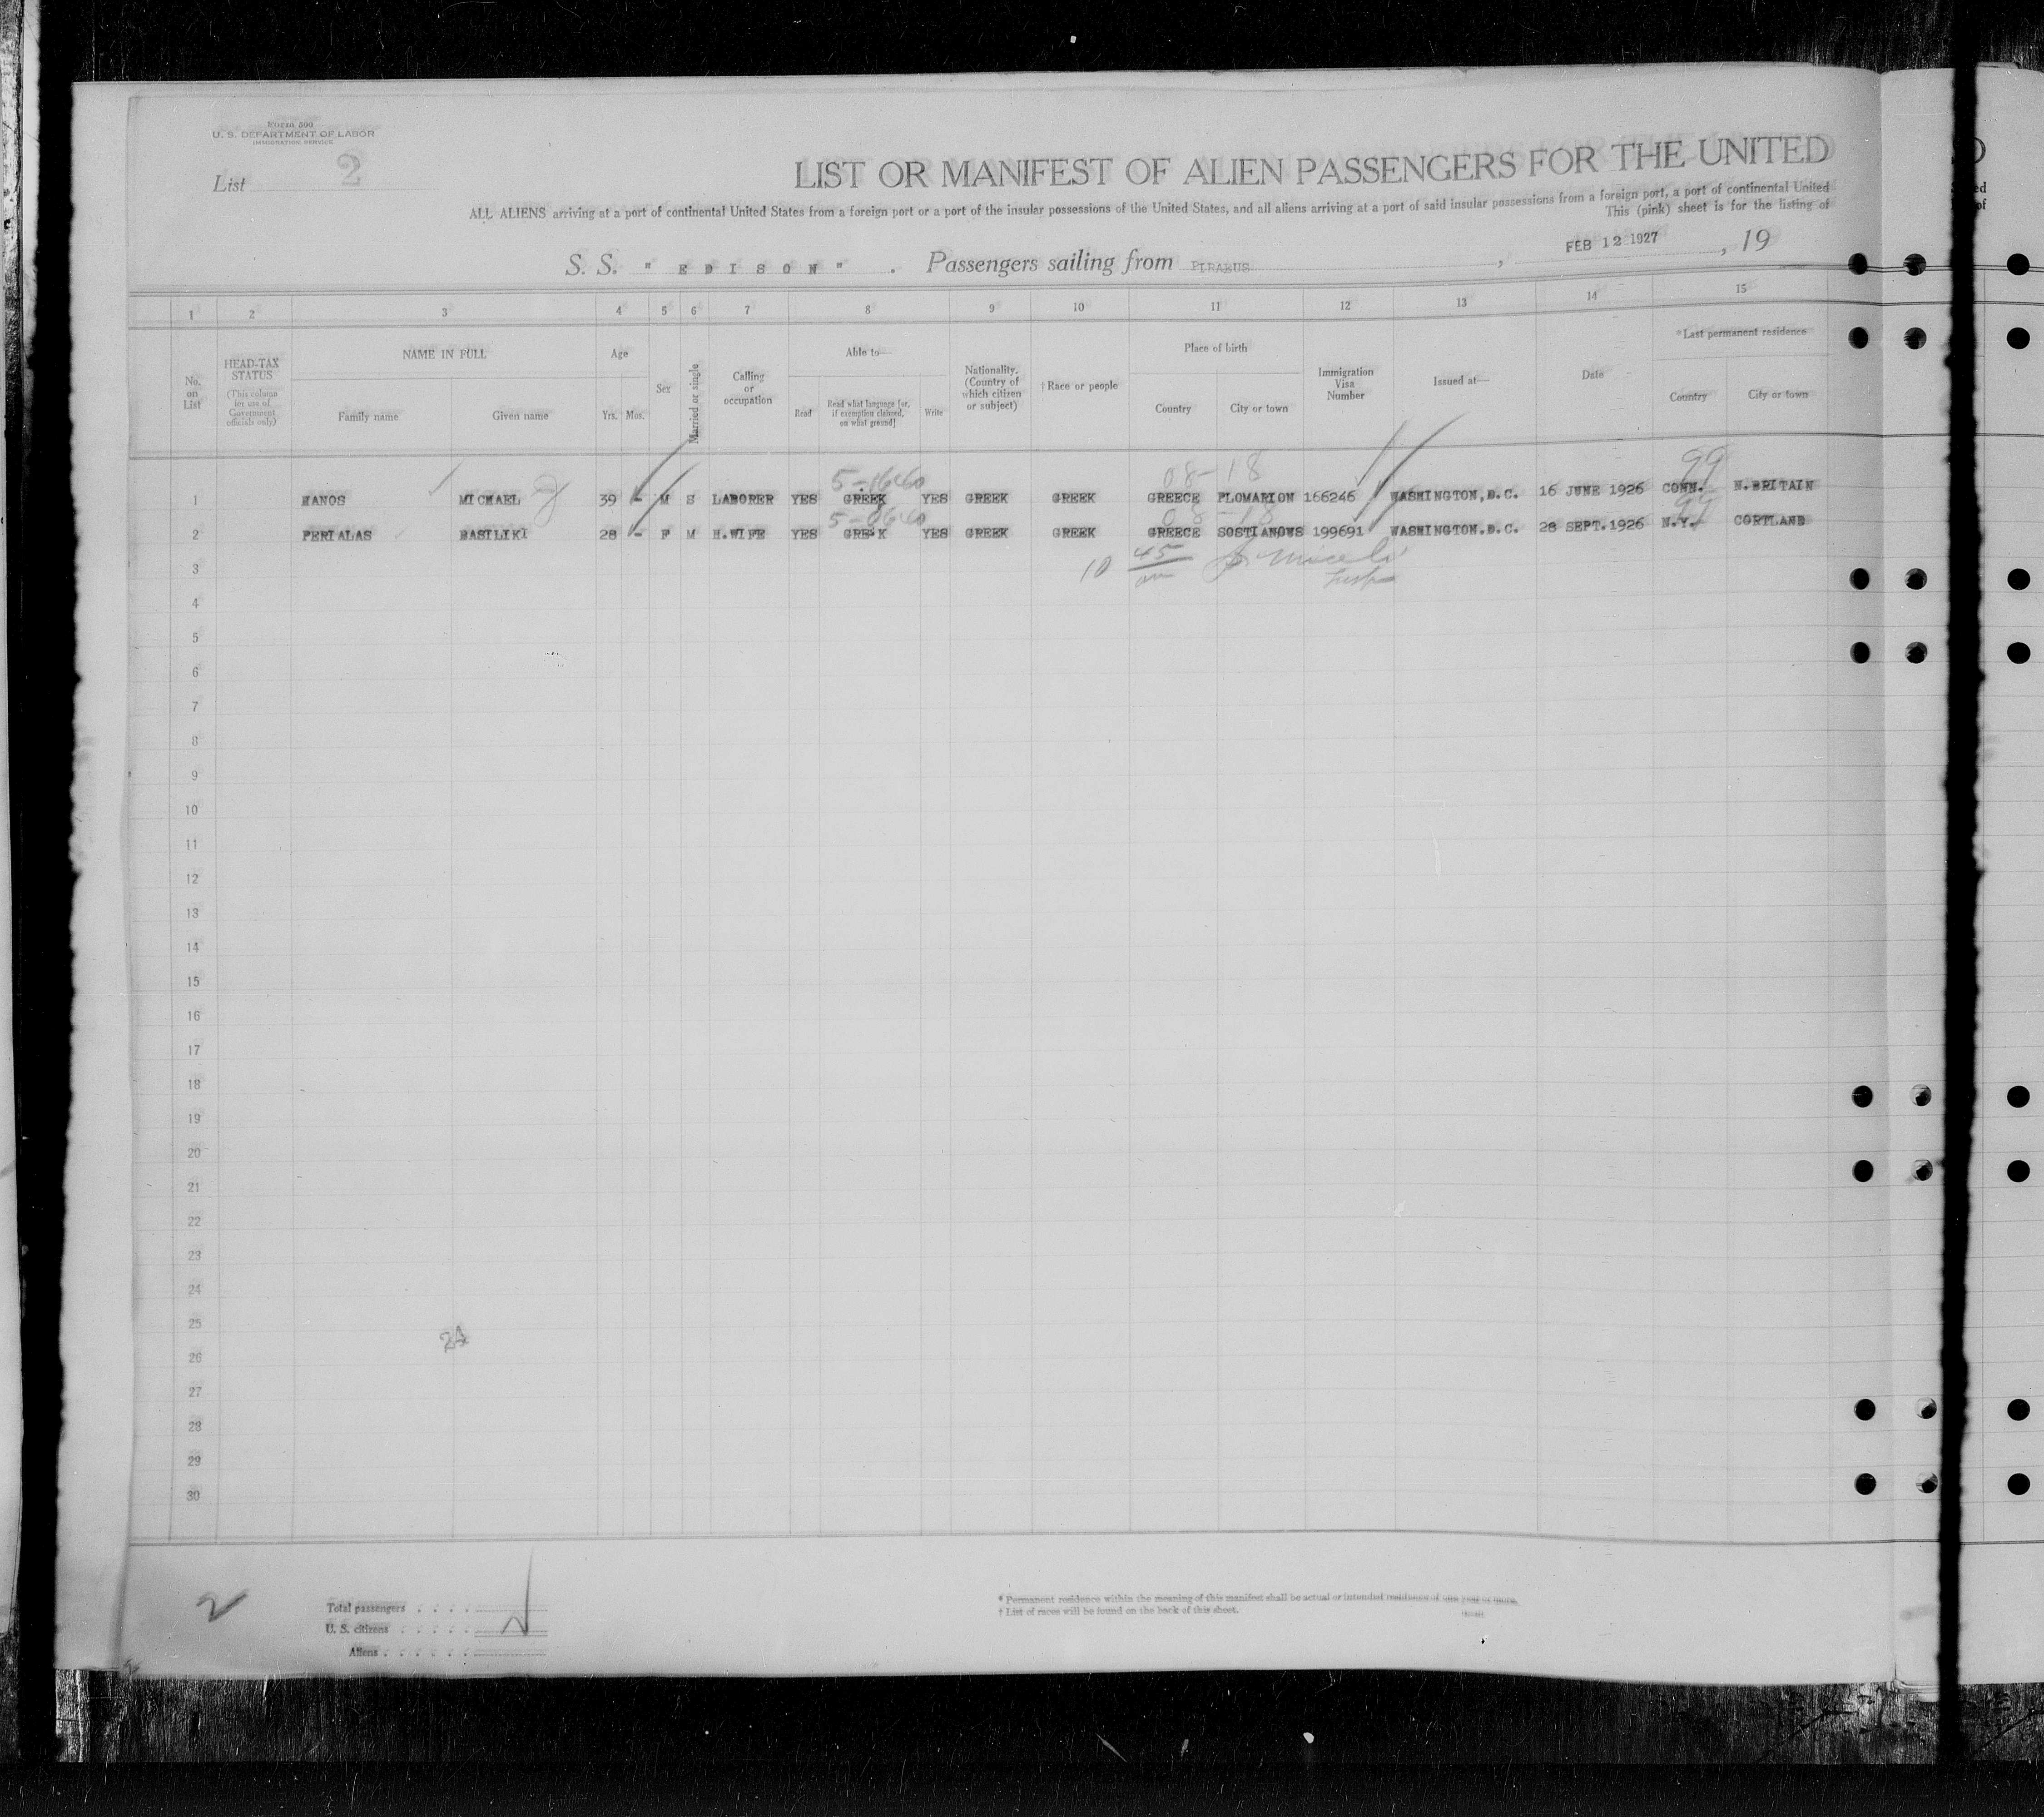 Form 500
U. S. DEPARTMENT OF LABOR
IMMIGRATION SERVICE
List 2
LIST OR MANIFEST OF ALIEN PASSENGERS FOR THE UNITED
ALL ALIENS arriving at a port of continental United States from a foreign port or a port of the insular possessions of the United States, and all aliens arriving at a port of said insular possessions from a foreign port, a port of continental United
This (pink) sheet is for the listing of
S. S. "EDISON". Passengers sailing from PIRAEUS, FEB 12 1927, 19
1 2 3 4 5 6 7 8 9 10 11 12 13 14 15
No. on List
HEAD-TAX STATUS
(This column for use of Government officials only)
NAME IN FULL
Family name Given name
Age
Yrs. Mos.
Sex
Married or single
Calling or occupation
Able to—
Read Read what language [or, if exemption claimed, on what ground] Write
Nationality. (Country of which citizen or subject)
†Race or people
Place of birth
Country City or town
Immigration Visa Number
Issued at—
Date
*Last permanent residence
Country City or town
08-18 99
1 MANOS MICHAEL 39 - M S LABORER YES GREEK YES GREEK GREEK GREECE PLOMARION 166246 WASHINGTON,D.C. 16 JUNE 1926 CONN. N.BRITAIN
08-18 99
2 PERIALAS BASILIKI 28 - F M H.WIFE YES GREEK YES GREEK GREEK GREECE SOSTIANOWS 199691 WASHINGTON.D.C. 28 SEPT.1926 N.Y. CORTLAND
3 10 45
4
5
6
7
8
9
10
11
12
13
14
15
16
17
18
19
20
21
22
23
24
25
26
27
28
29
30
2
Total passengers
U. S. citizens
Aliens
* Permanent residence within the meaning of this manifest shall be actual or intended residence of one year or more.
† List of races will be found on the back of this sheet.